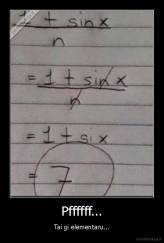 1 + sin x
n
= 1 + sin x
n
= 1 + si x
= 7
Pffffff...
Tai gi elementaru...